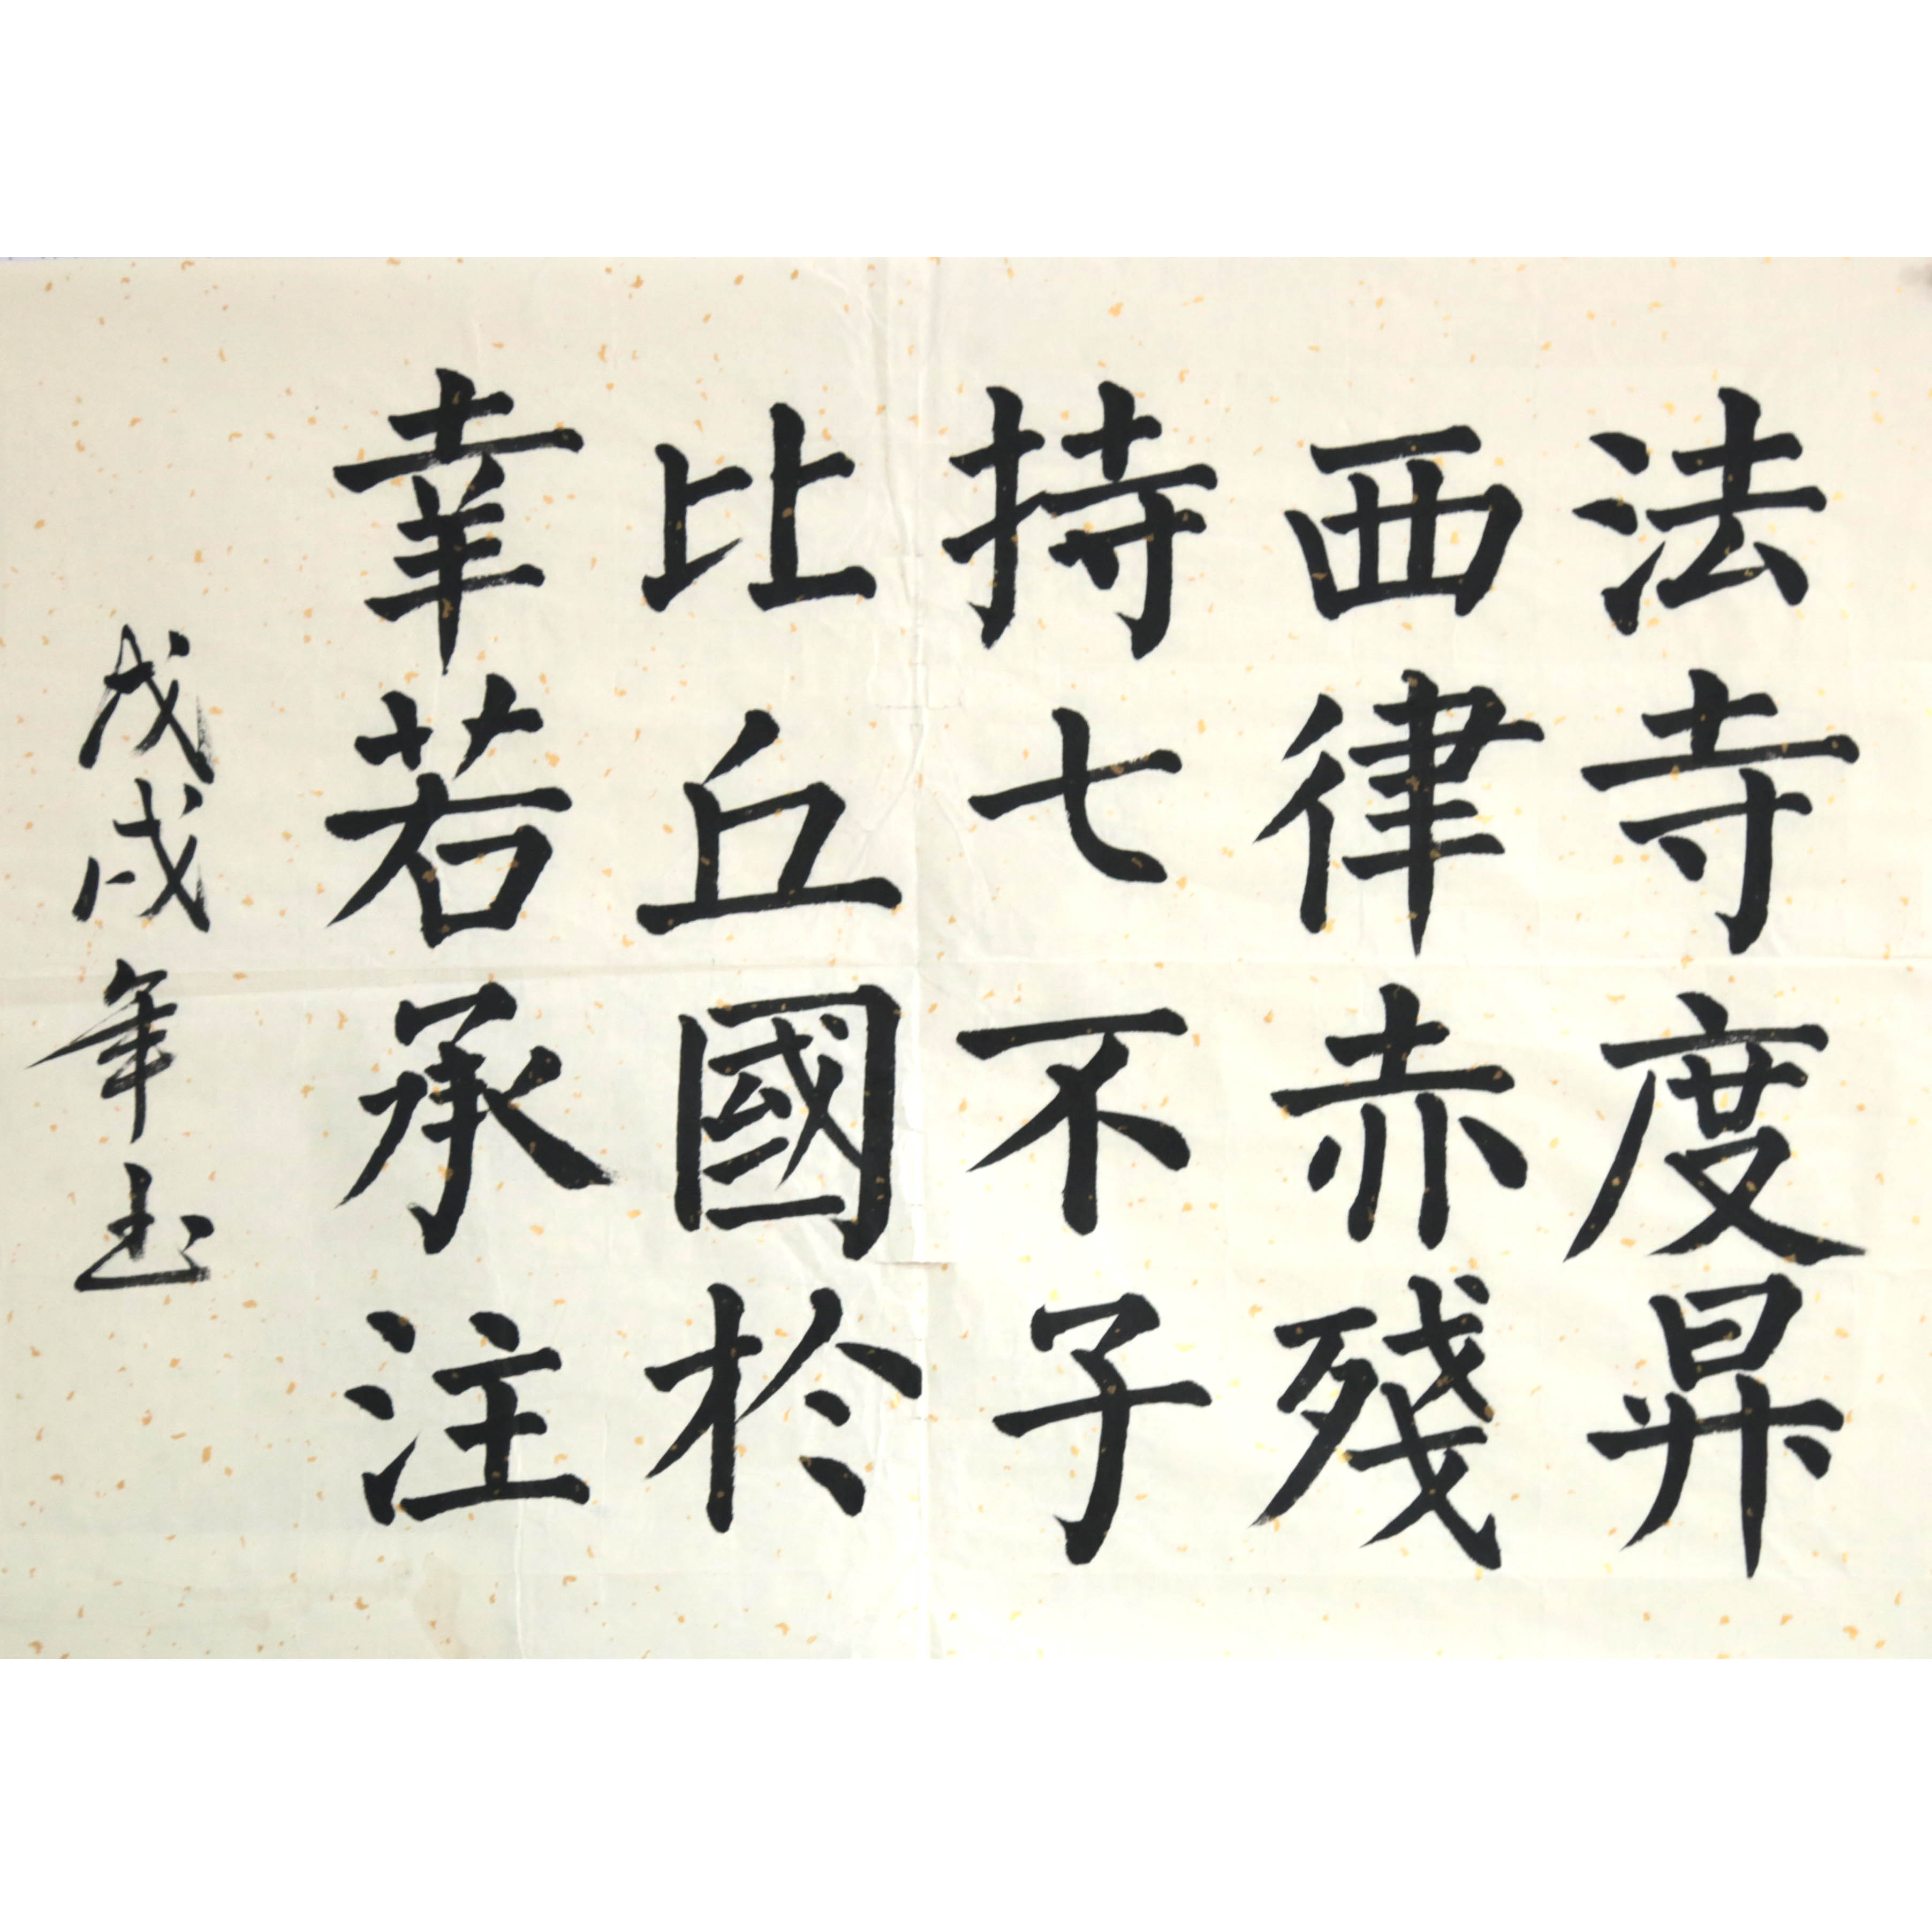 法寺度昇
西律赤殘
持七不子
比丘國於
幸若承注
戊戌年玉